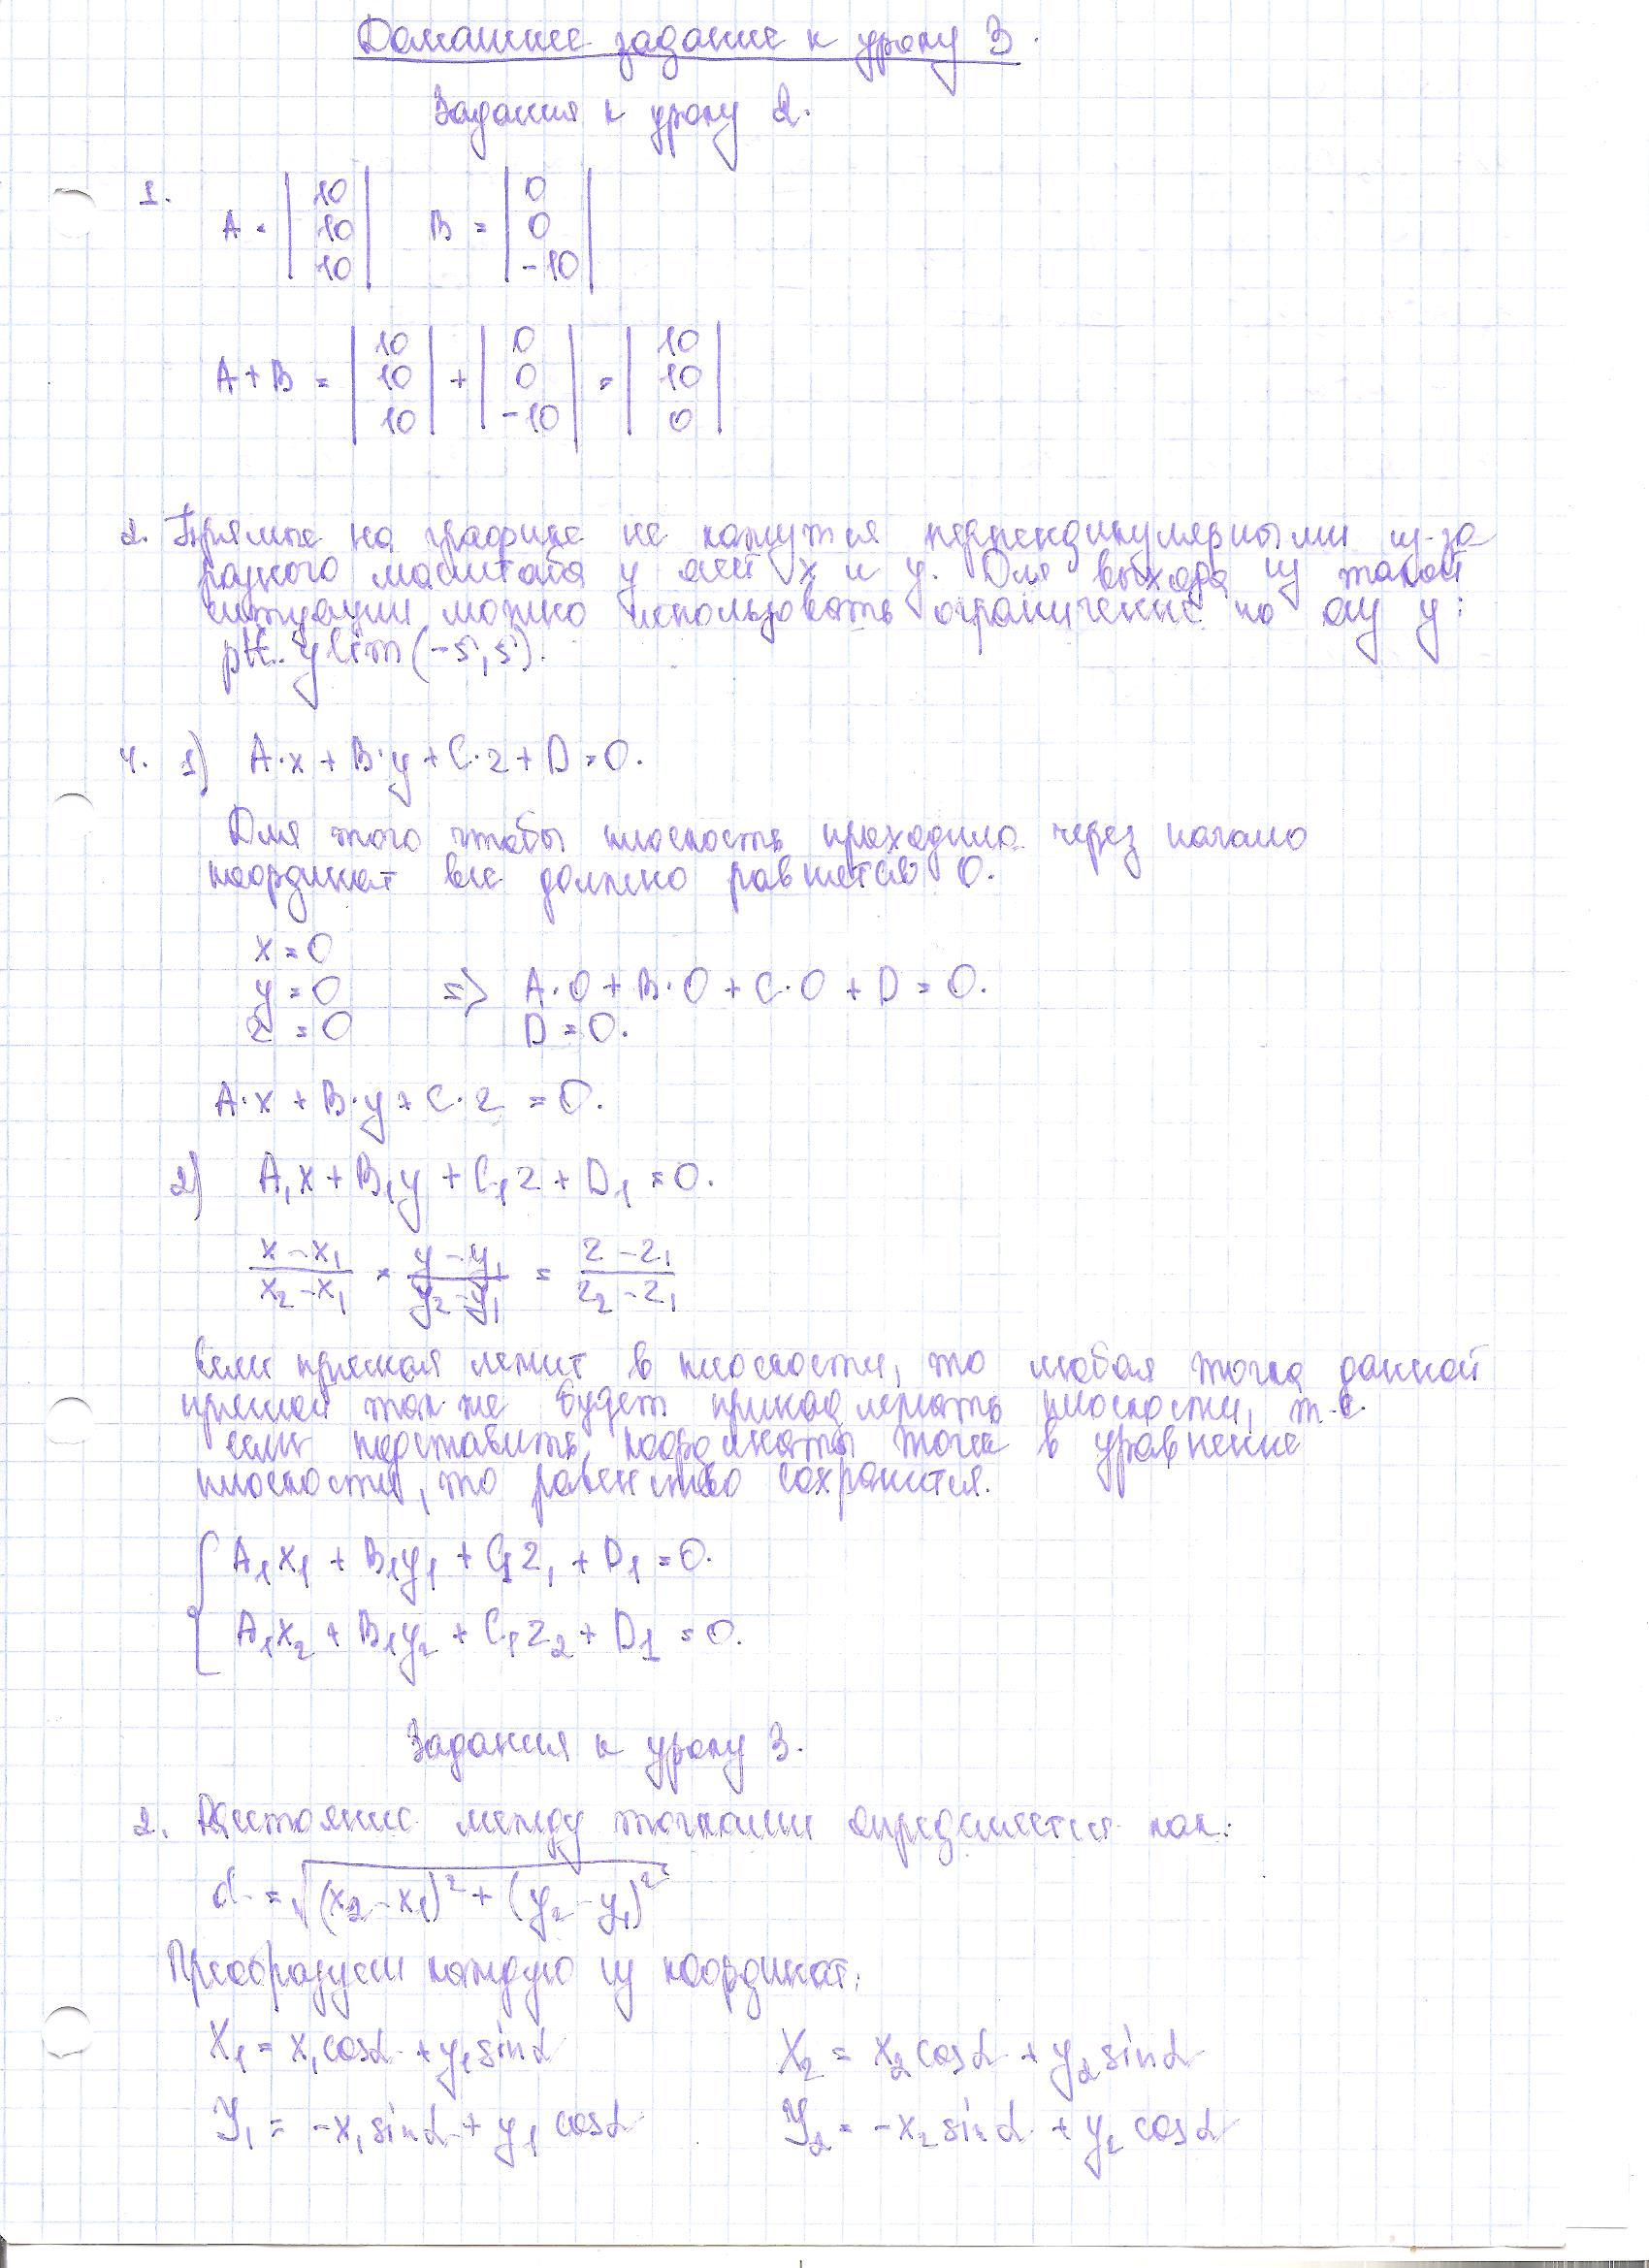 Домашнее задание к уроку 3.
Задания к уроку 2.
1.
A = | 10 | B = | 0 |
| 10 | | 0 |
| 10 | | -10 |
A + B = | 10 | + | 0 | = | 10 |
| 10 | | 0 | | 10 |
| 10 | | -10 | | 0 |
2. Прямые на графике не кажутся перпендикулярными из-за
разного масштаба у осей x и y. Для выхода из такой
ситуации можно использовать ограничение по оси y:
plt.ylim(-5, 5).
4. 1) A·x + B·y + C·z + D = 0.
Для того чтобы плоскость проходила через начало
координат все должно равнятся 0.
x = 0
y = 0 => A·0 + B·0 + C·0 + D = 0.
z = 0 D = 0.
A·x + B·y + C·z = 0.
2) A₁x + B₁y + C₁z + D₁ = 0.
(x - x₁)/(x₂ - x₁) = (y - y₁)/(y₂ - y₁) = (z - z₁)/(z₂ - z₁)
Если прямая лежит в плоскости, то любая точка данной
прямой так же будет принадлежать плоскости, т.е.
если подставить координаты точек в уравнение
плоскости, то равенство сохранится.
{ A₁x₁ + B₁y₁ + C₁z₁ + D₁ = 0.
A₁x₂ + B₁y₂ + C₁z₂ + D₁ = 0.
Задания к уроку 3.
2. Расстояние между точками определяется как:
d = √((x₂ - x₁)² + (y₂ - y₁)²)
Преобразуем каждую из координат:
X₁ = x₁cosα + y₁sinα X₂ = x₂cosα + y₂sinα
Y₁ = -x₁sinα + y₁cosα Y₂ = -x₂sinα + y₂cosα